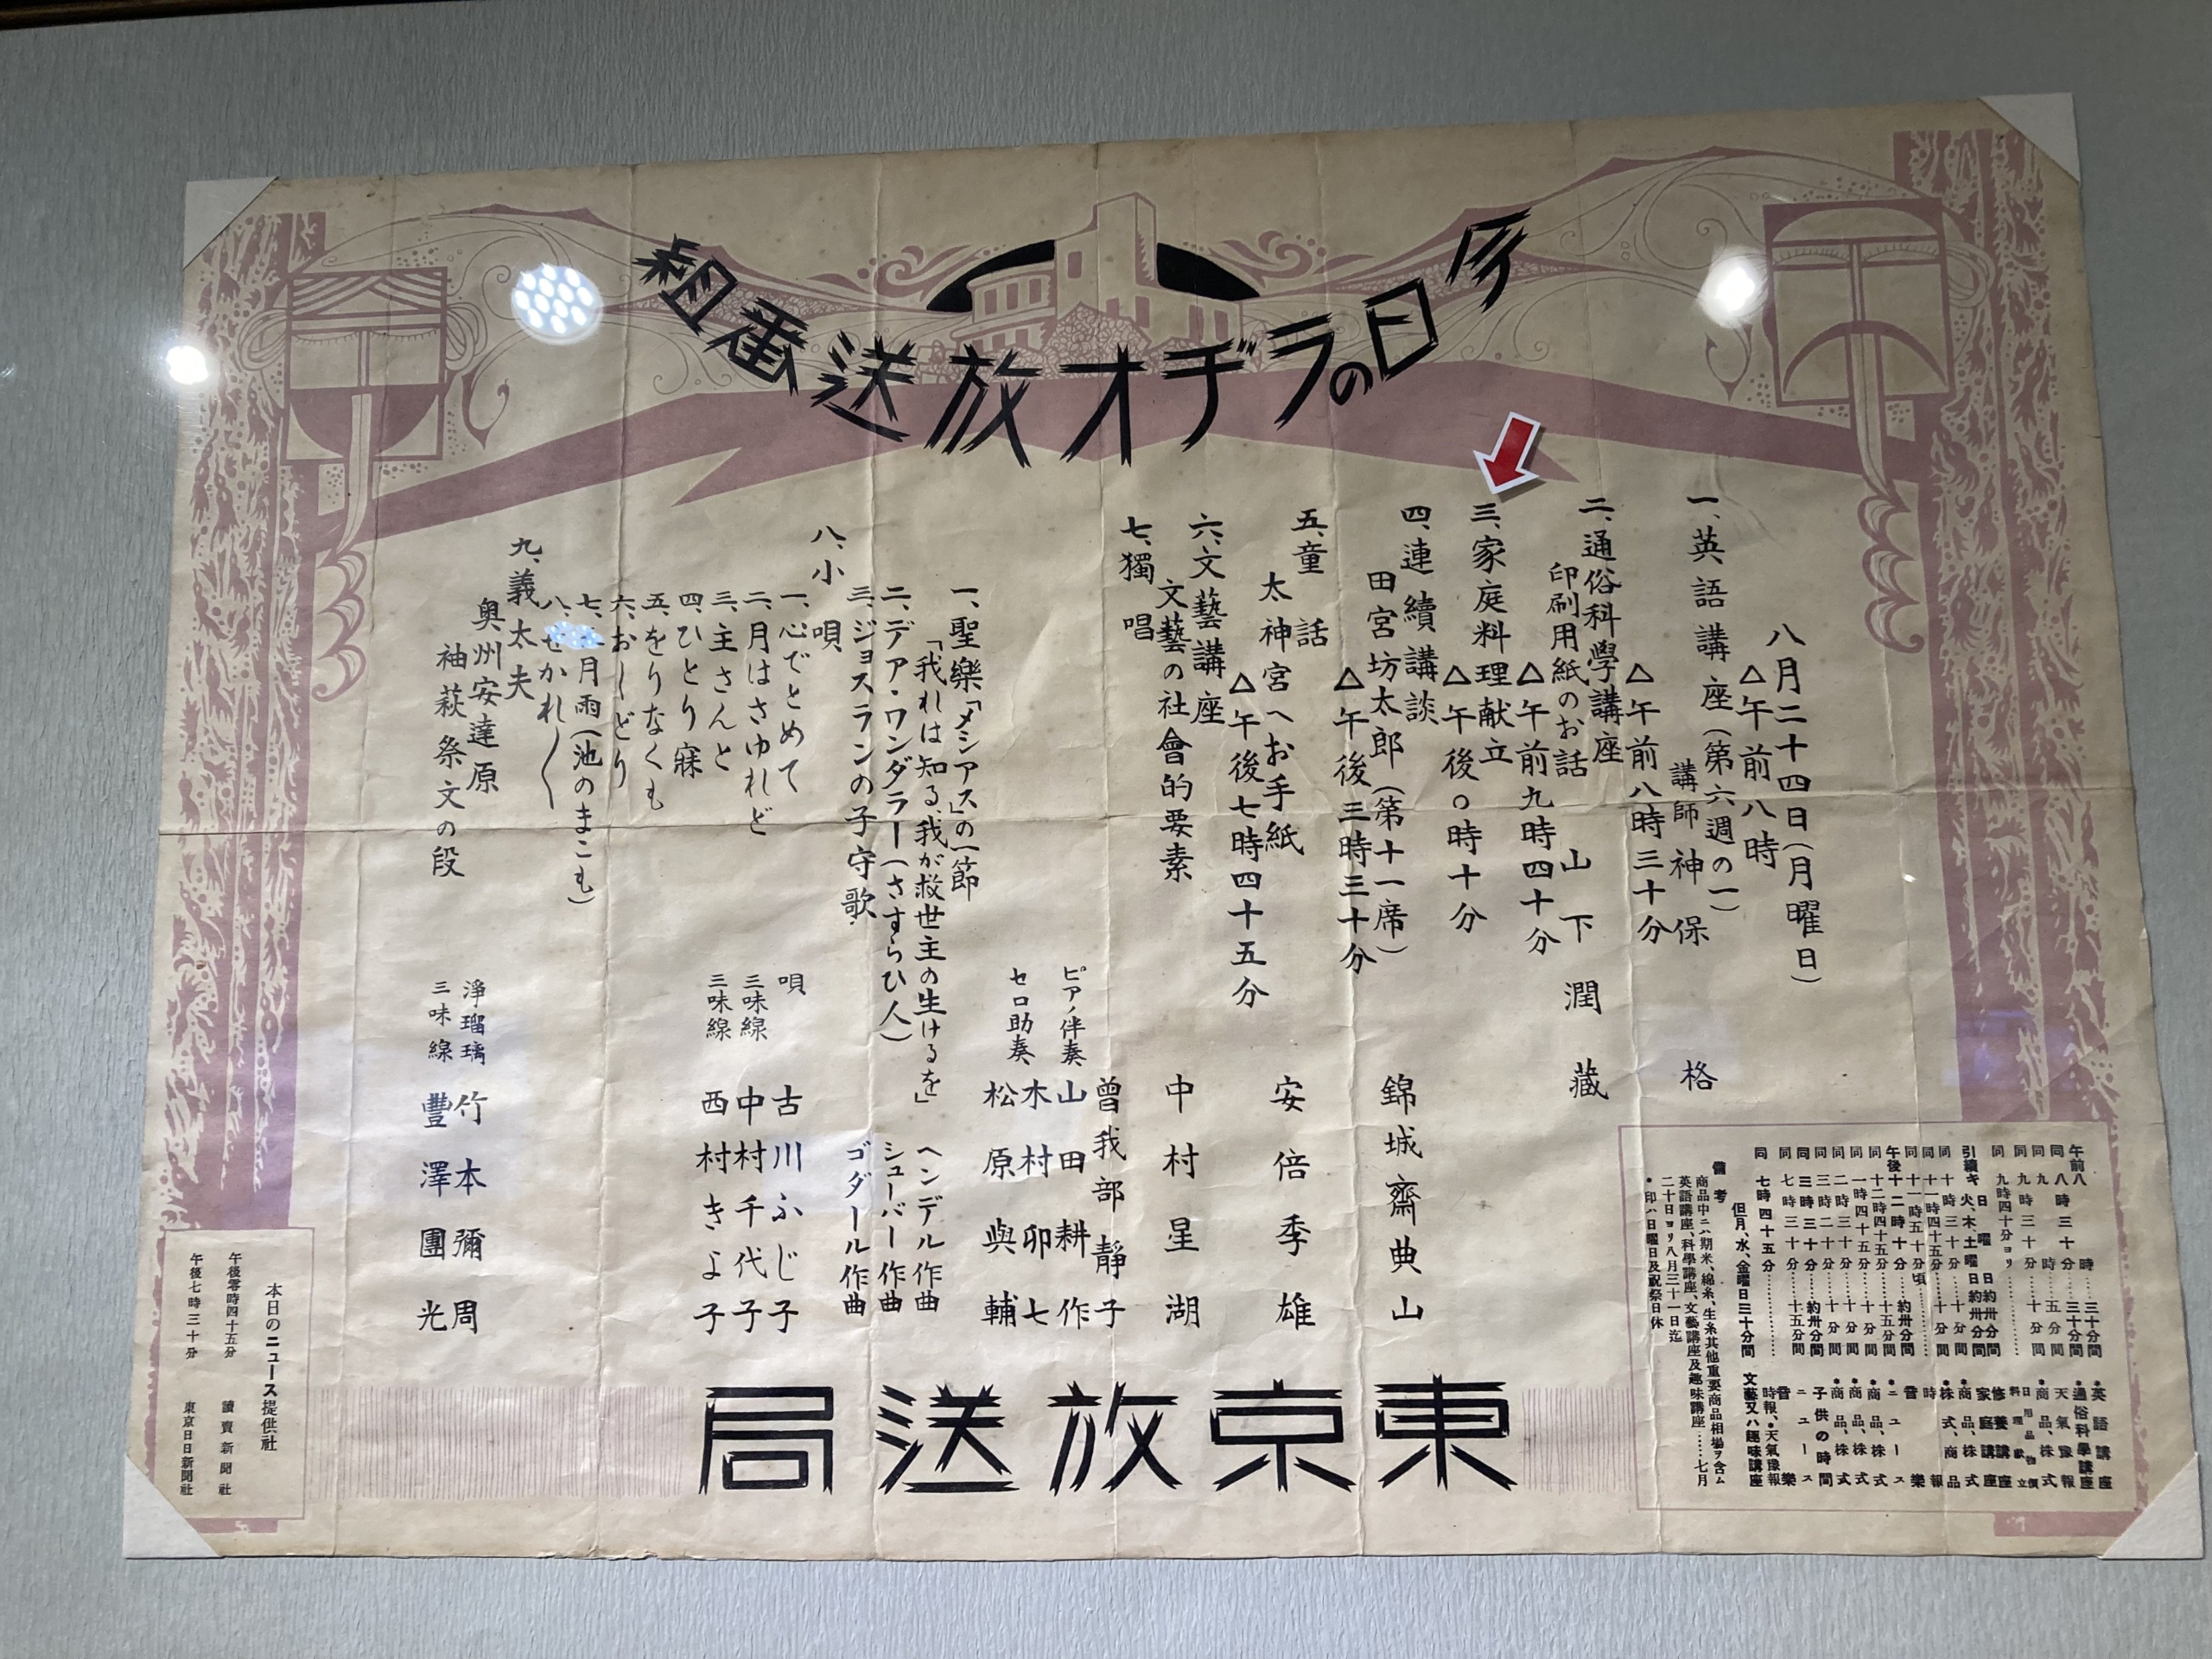 今日のラヂオ放送番組
八月二十四日(月曜日)
△午前八時
一、英語講座(第六週の一)
講師 神保格
△午前八時三十分
二、通俗科學講座
印刷用紙のお話 山下潤藏
△午前九時四十分
三、家庭料理献立
△午後〇時十分
四、連續講談
田宮坊太郎(第十一席) 錦城齋典山
△午後三時三十分
五、童話
太神宮へお手紙 安倍季雄
△午後七時四十五分
六、文藝講座
文藝の社會的要素 中村星湖
七、獨唱 曾我部靜子
ピアノ伴奏 山田耕作
セロ助奏 木村卯七
松原與輔
一、聖樂「メシアス」の一節
「我れは知る、我が救世主の生けるを」 ヘンデル作曲
二、デア・ワンダラー(さすらひ人) シューバー作曲
三、ジョスランの子守歌 ゴダール作曲
八、小唄
一、心でとめて 唄 古川ふじ子
二、月はさゆれど 三味線 中村千代子
三、主さんと 三味線 西村きよ子
四、ひとり寐
五、をりなくも
六、おーどり
七、月雨(池のまこも)
八、せかれ〱
九、義太夫
奥州安達原 浄瑠璃 竹本彌周
袖萩祭文の段 三味線 豐澤團光
東京放送局
午前八時……三十分間 •英語講座
同八時三十分……三十分間 •通俗科學講座
同九時……五分間 天氣豫報
同九時三十分……十分間 •商品、株式
同九時四十分ヨリ…… 日用品物價 料理獻立
引續キ 日曜日約卅分間 修養講座
火、木、土曜日約卅分間 家庭講座
同十時三十分……十分間 •商品、株式
同十一時四十五分……十分間 •株式、商品
同十一時五十分頃…… 時報
午後十二時十分……約卅分間 音樂
同十二時四十五分……十五分間 •ニュース
同一時四十五分……十分間 •商品、株式
同二時三十分……十分間 •商品、株式
同三時二十分……十分間 •商品、株式
同三時三十分……約卅分間 子供の時間
同七時三十分……十五分間 ニュース
同七時四十五分…… 音樂
時報、•天氣豫報
但月、水、金曜日三十分間 文藝又ハ趣味講座
備考
商品中ニハ期米、綿糸、生糸其他重要商品相場ヲ含ム
英語講座、科學講座、文藝講座及趣味講座……七月
二十日ヨリ八月三十一日迄
•印ハ日曜日及祝祭日休
本日のニュース提供社
午後零時四十五分 讀賣新聞社
午後七時三十分 東京日日新聞社